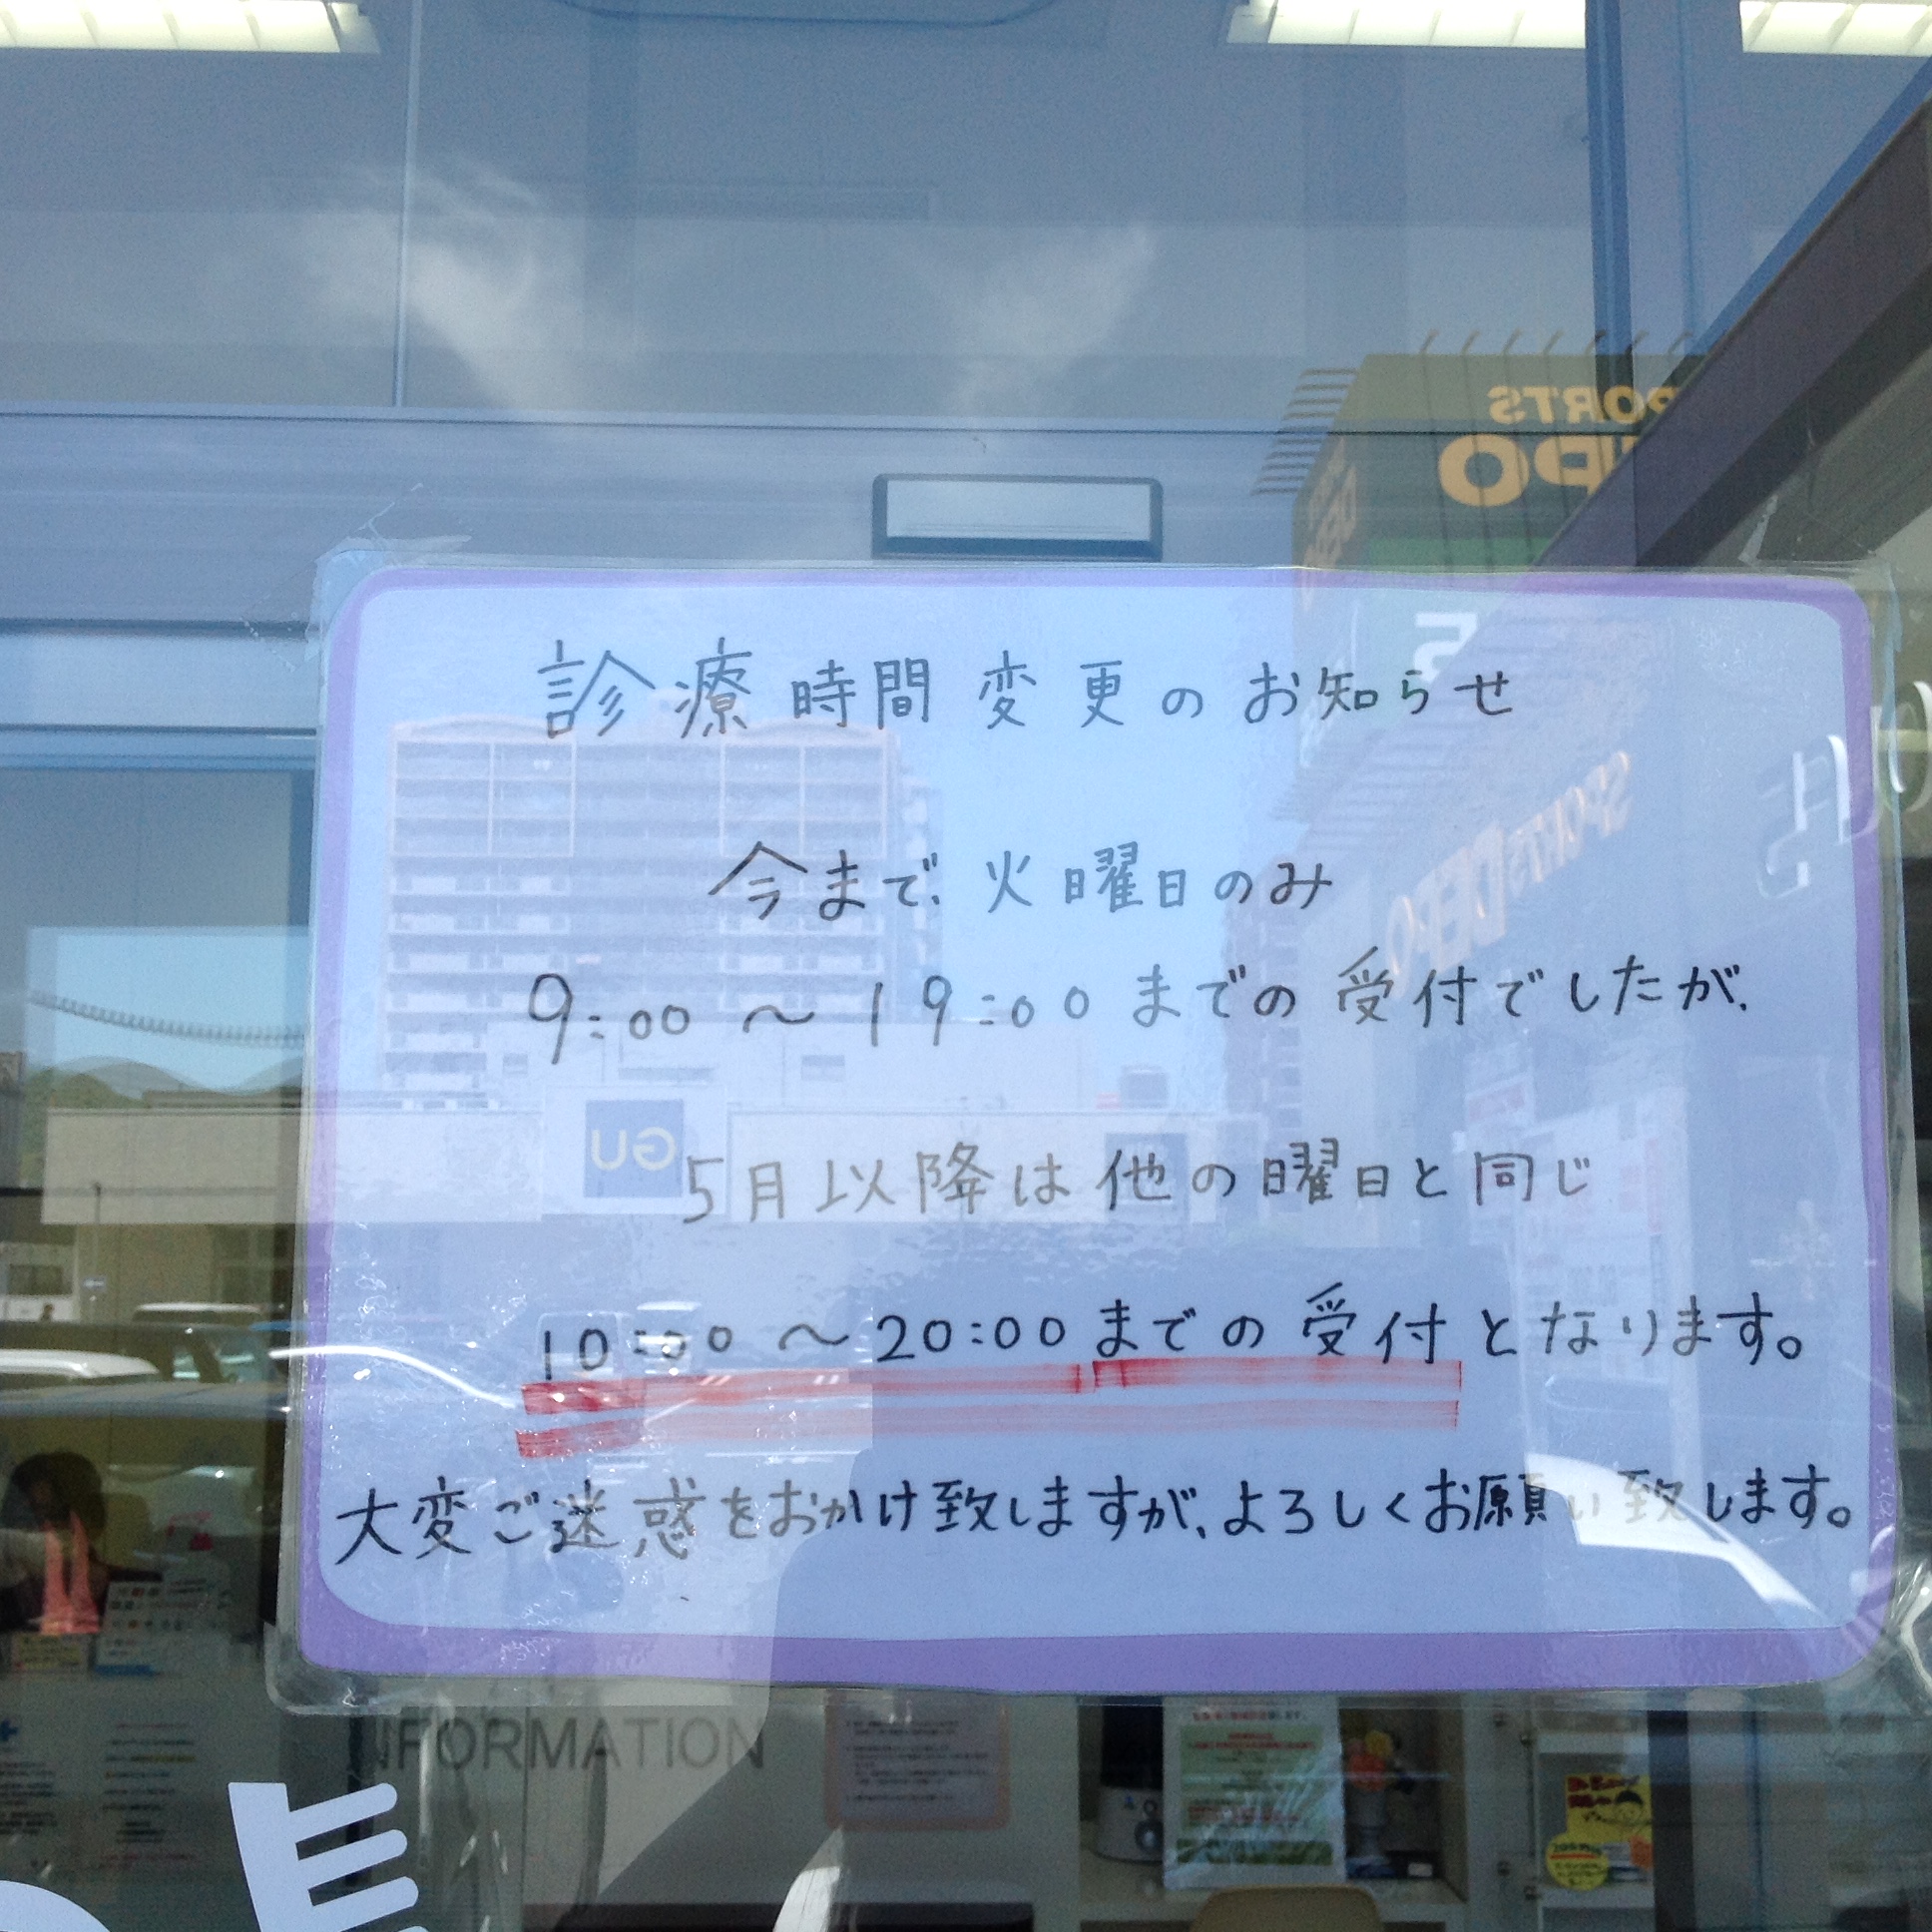 診療時間変更のお知らせ
今まで、火曜日のみ
9:00～19:00までの受付でしたが、
5月以降は他の曜日と同じ
10:00～20:00までの受付となります。
大変ご迷惑をおかけ致しますが、よろしくお願い致します。
SPORTS DEPO
GU
INFORMATION